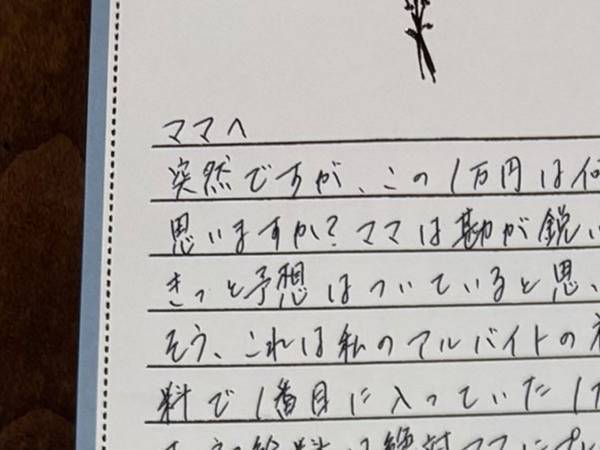 ママへ
突然ですが、この1万円は何
思いますか?ママは勘が鋭い
きっと予想はついていると思い
そう、これは私のアルバイトの
料で1番目に入っていた1
ママに